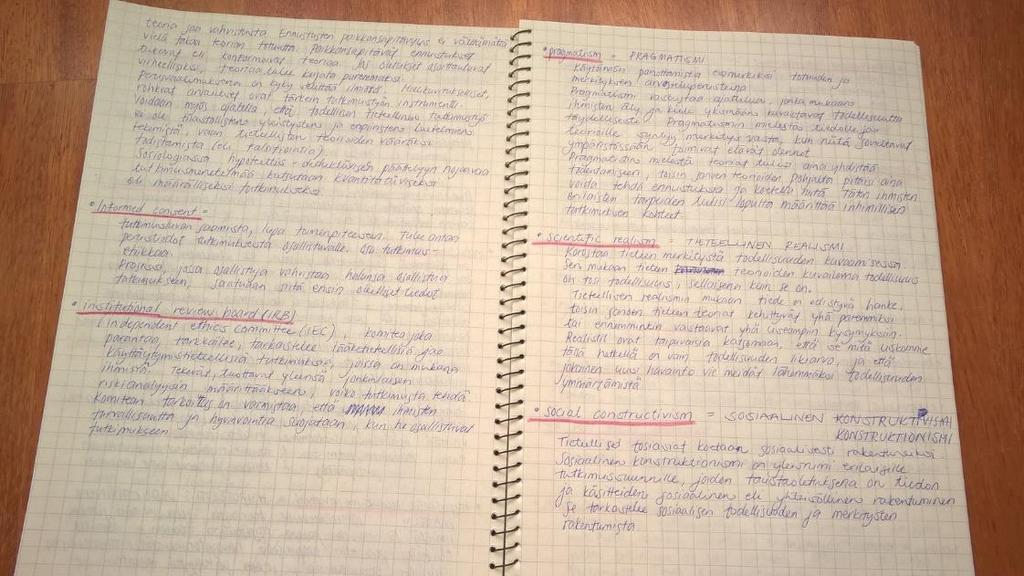 teoria saa vahvistusta. Ennustusten paikkansapitävyys ei välttämättä
vielä takaa teorian totuutta. Paikkansapitävät ennustukset
tukevat eli konfirmoivat teoriaa. Jos oletukset osoittautuvat
virheellisiksi, teoriaa tulee korjata paremmaksi.
Perusvaatimuksena on kyky selittää ilmiötä. Mielikuvitukselliset,
rohkeat arvaukset ovat tärkein tutkimustyön instrumentti.
Voidaan myös ajatella että todellinen tieteellinen tutkimustyö
ei ole tilastollisten yleistysten ja empiristen luetelmien
tekemistä, vaan tieteellisten teorioiden vääräksi
todistamista (eli falsifiointia).
Sosiologiassa hypoteettis-deduktiiviseen päättelyyn nojaavaa
tutkimusmenetelmää kutsutaan kvantitatiiviseksi
eli määrälliseksi tutkimukseksi.
• Informed consent =
tutkimusluvan saamista, lupa toimenpiteeseen. Tulee antaa
perustiedot tutkimuksesta osallistuvalle. Osa tutkimus-
etiikkaa.
Prosessi, jossa osallistuja vahvistaa halunsa osallistua
tutkimukseen, saatuaan siitä ensin oleelliset tiedot
• Institutional review board (IRB)
(independent ethics committee (IEC), komitea joka
parantaa, tarkkailee, tarkastelee lääketieteellisiä ja
käyttäytymistieteellisiä tutkimuksia, joissa on mukana
ihmisiä. Tekevät, tuottavat yleensä jonkinlaisen
riskianalyysin määrittääkseen, voiko tutkimusta tehdä
Komitean tarkoitus on varmistaa, että ihmisten
turvallisuutta ja hyvinvointia suojataan, kun he osallistuvat
tutkimukseen.
• pragmatism = PRAGMATISMI
Käytännön panottamista esimerkiksi totuuden ja
merkityksen arvosteluperusteina
Pragmatismi vastustaa ajatusta, jonka mukaan
ihmisten äly ja kieli yksinään kuvastavat todellisuutta
täydellisesti. Pragmatismin mielestä tiedolle ja
teorioille syntyy merkitys vasta, kun niitä soveltavat
ympäristössään toimivat elävät olennot
Pragmatismin mielestä teoriat tulisi aina yhdistää
todentamiseen, toisin sanoen teorioiden pohjalta pitäisi aina
voida tehdä ennustuksia ja koetella niitä. Täten ihmisten
erilaisten tarpeiden tulisi lopulta määrittää inhimillisen
tutkimuksen kohteet
• Scientific realism = TIETEELLINEN REALISMI
Korostaa tieteen merkitystä todellisuuden kuvaamisessa
Sen mukaan tieteen teorioiden kuvailema todellisuus
on tosi todellisuus, sellaisena kuin se on.
Tieteellisen realismin mukaan tiede on edistyvä hanke,
toisin sanoen tieteen teoriat kehittyvät yhä paremmiksi
tai ennemminkin vastaavat yhä useampiin kysymyksiin.
Realistit ovat taipuvaisia katsomaan, että se mitä uskomme
tällä hetkellä on vain todellisuuden likiarvo, ja että
jokainen uusi havainto vie meidät lähemmäksi todellisuuden
ymmärtämistä
• Social constructivism = SOSIAALINEN KONSTRUKTIVISMI
KONSTRUKTIONISMI
Tieteelliset tosiasiat koetaan sosiaalisesti rakentuneiksi
Sosiaalinen konstruktionismi on yleisnimi erilaisille
tutkimussuunnille, joiden taustaoletuksena on tiedon
ja käsitteiden sosiaalinen eli yhteisöllinen rakentuminen
Se tarkastelee sosiaalisen todellisuuden ja merkitysten
rakentumista